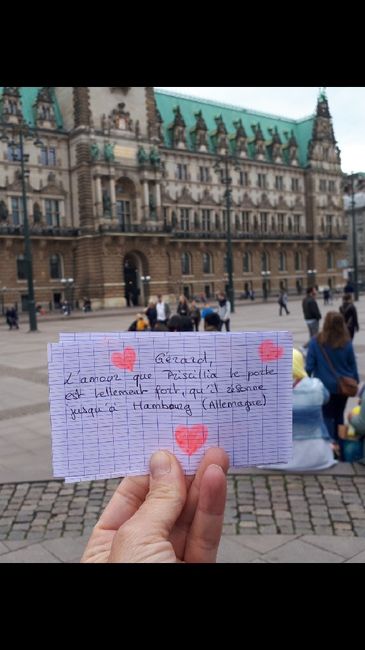 Gérard,
L'amour que Priscillia te porte
est tellement fort, qu'il résonne
jusqu'à Hambourg (Allemagne)